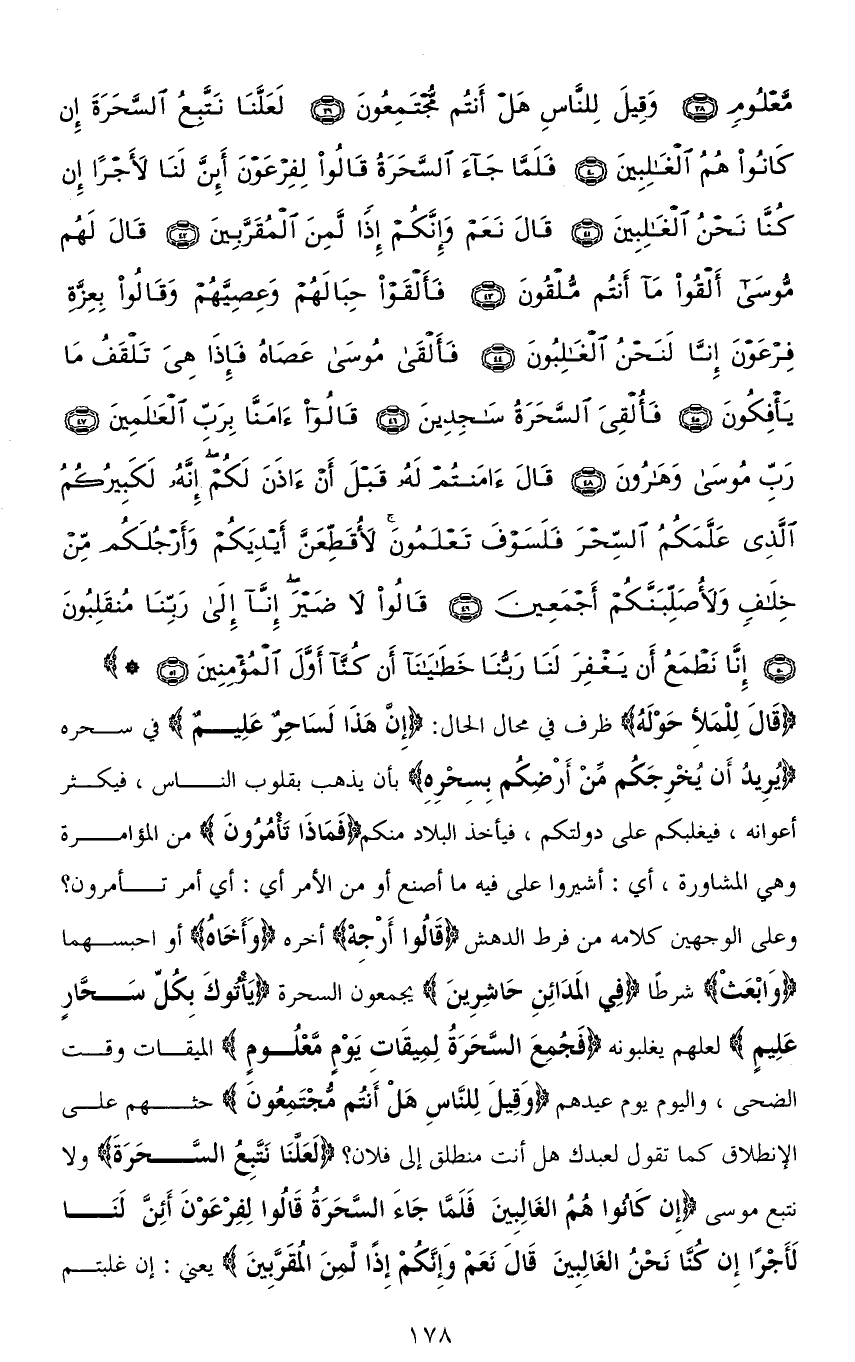 مَّعْلُومٍ ﴿٣٨﴾ وَقِيلَ لِلنَّاسِ هَلْ أَنتُم مُّجْتَمِعُونَ ﴿٣٩﴾ لَعَلَّنَا نَتَّبِعُ ٱلسَّحَرَةَ إِن
كَانُوا۟ هُمُ ٱلْغَـٰلِبِينَ ﴿٤٠﴾ فَلَمَّا جَآءَ ٱلسَّحَرَةُ قَالُوا۟ لِفِرْعَوْنَ أَئِنَّ لَنَا لَأَجْرًا إِن
كُنَّا نَحْنُ ٱلْغَـٰلِبِينَ ﴿٤١﴾ قَالَ نَعَمْ وَإِنَّكُمْ إِذًا لَّمِنَ ٱلْمُقَرَّبِينَ ﴿٤٢﴾ قَالَ لَهُم
مُّوسَىٰٓ أَلْقُوا۟ مَآ أَنتُم مُّلْقُونَ ﴿٤٣﴾ فَأَلْقَوْا۟ حِبَالَهُمْ وَعِصِيَّهُمْ وَقَالُوا۟ بِعِزَّةِ
فِرْعَوْنَ إِنَّا لَنَحْنُ ٱلْغَـٰلِبُونَ ﴿٤٤﴾ فَأَلْقَىٰ مُوسَىٰ عَصَاهُ فَإِذَا هِىَ تَلْقَفُ مَا
يَأْفِكُونَ ﴿٤٥﴾ فَأُلْقِىَ ٱلسَّحَرَةُ سَـٰجِدِينَ ﴿٤٦﴾ قَالُوٓا۟ ءَامَنَّا بِرَبِّ ٱلْعَـٰلَمِينَ ﴿٤٧﴾
رَبِّ مُوسَىٰ وَهَـٰرُونَ ﴿٤٨﴾ قَالَ ءَامَنتُمْ لَهُۥ قَبْلَ أَنْ ءَاذَنَ لَكُمْ ۖ إِنَّهُۥ لَكَبِيرُكُمُ
ٱلَّذِى عَلَّمَكُمُ ٱلسِّحْرَ فَلَسَوْفَ تَعْلَمُونَ ۚ لَأُقَطِّعَنَّ أَيْدِيَكُمْ وَأَرْجُلَكُم مِّنْ
خِلَـٰفٍ وَلَأُصَلِّبَنَّكُمْ أَجْمَعِينَ ﴿٤٩﴾ قَالُوا۟ لَا ضَيْرَ ۖ إِنَّآ إِلَىٰ رَبِّنَا مُنقَلِبُونَ
﴿٥٠﴾ إِنَّا نَطْمَعُ أَن يَغْفِرَ لَنَا رَبُّنَا خَطَـٰيَـٰنَآ أَن كُنَّآ أَوَّلَ ٱلْمُؤْمِنِينَ ﴿٥١﴾ * ﴾
﴿قَالَ لِلْمَلأِ حَوْلَهُ﴾ ظرف في محال الحال: ﴿إِنَّ هَذَا لَسَاحِرٌ عَلِيمٌ ﴾ في سحره
﴿يُرِيدُ أَن يُخْرِجَكُم مِّنْ أَرْضِكُم بِسِحْرِهِ﴾ بأن يذهب بقلوب الناس ، فيكثر
أعوانه ، فيغلبكم على دولتكم ، فيأخذ البلاد منكم﴿فَمَاذَا تَأْمُرُونَ ﴾ من المؤامرة
وهي المشاورة ، أي : أشيروا على فيه ما أصنع أو من الأمر أي : أي أمر تأمرون؟
وعلى الوجهين كلامه من فرط الدهش ﴿قَالُوا أَرْجِهْ﴾ أخره ﴿وَأَخَاهُ﴾ أو احبسهما
﴿وَابْعَثْ﴾ شرطًا ﴿فِي المَدَائِنِ حَاشِرِينَ ﴾ يجمعون السحرة ﴿يَأْتُوكَ بِكُلِّ سَحَّارٍ
عَلِيمٍ ﴾ لعلهم يغلبونه ﴿فَجُمِعَ السَّحَرَةُ لِمِيقَاتِ يَوْمٍ مَّعْلُومٍ ﴾ الميقات وقت
الضحى ، واليوم يوم عيدهم ﴿وَقِيلَ لِلنَّاسِ هَلْ أَنتُم مُّجْتَمِعُونَ ﴾ حثهم على
الإنطلاق كما تقول لعبدك هل أنت منطلق إلى فلان؟ ﴿لَعَلَّنَا نَتَّبِعُ السَّحَرَةَ﴾ ولا
نتبع موسى ﴿إِن كَانُوا هُمُ الغَالِبِينَ فَلَمَّا جَاءَ السَّحَرَةُ قَالُوا لِفِرْعَوْنَ أَئِنَّ لَنَا
لَأَجْرًا إِن كُنَّا نَحْنُ الغَالِبِينَ قَالَ نَعَمْ وَإِنَّكُمْ إِذًا لَّمِنَ المُقَرَّبِينَ ﴾ يعني : إن غلبتم
١٧٨